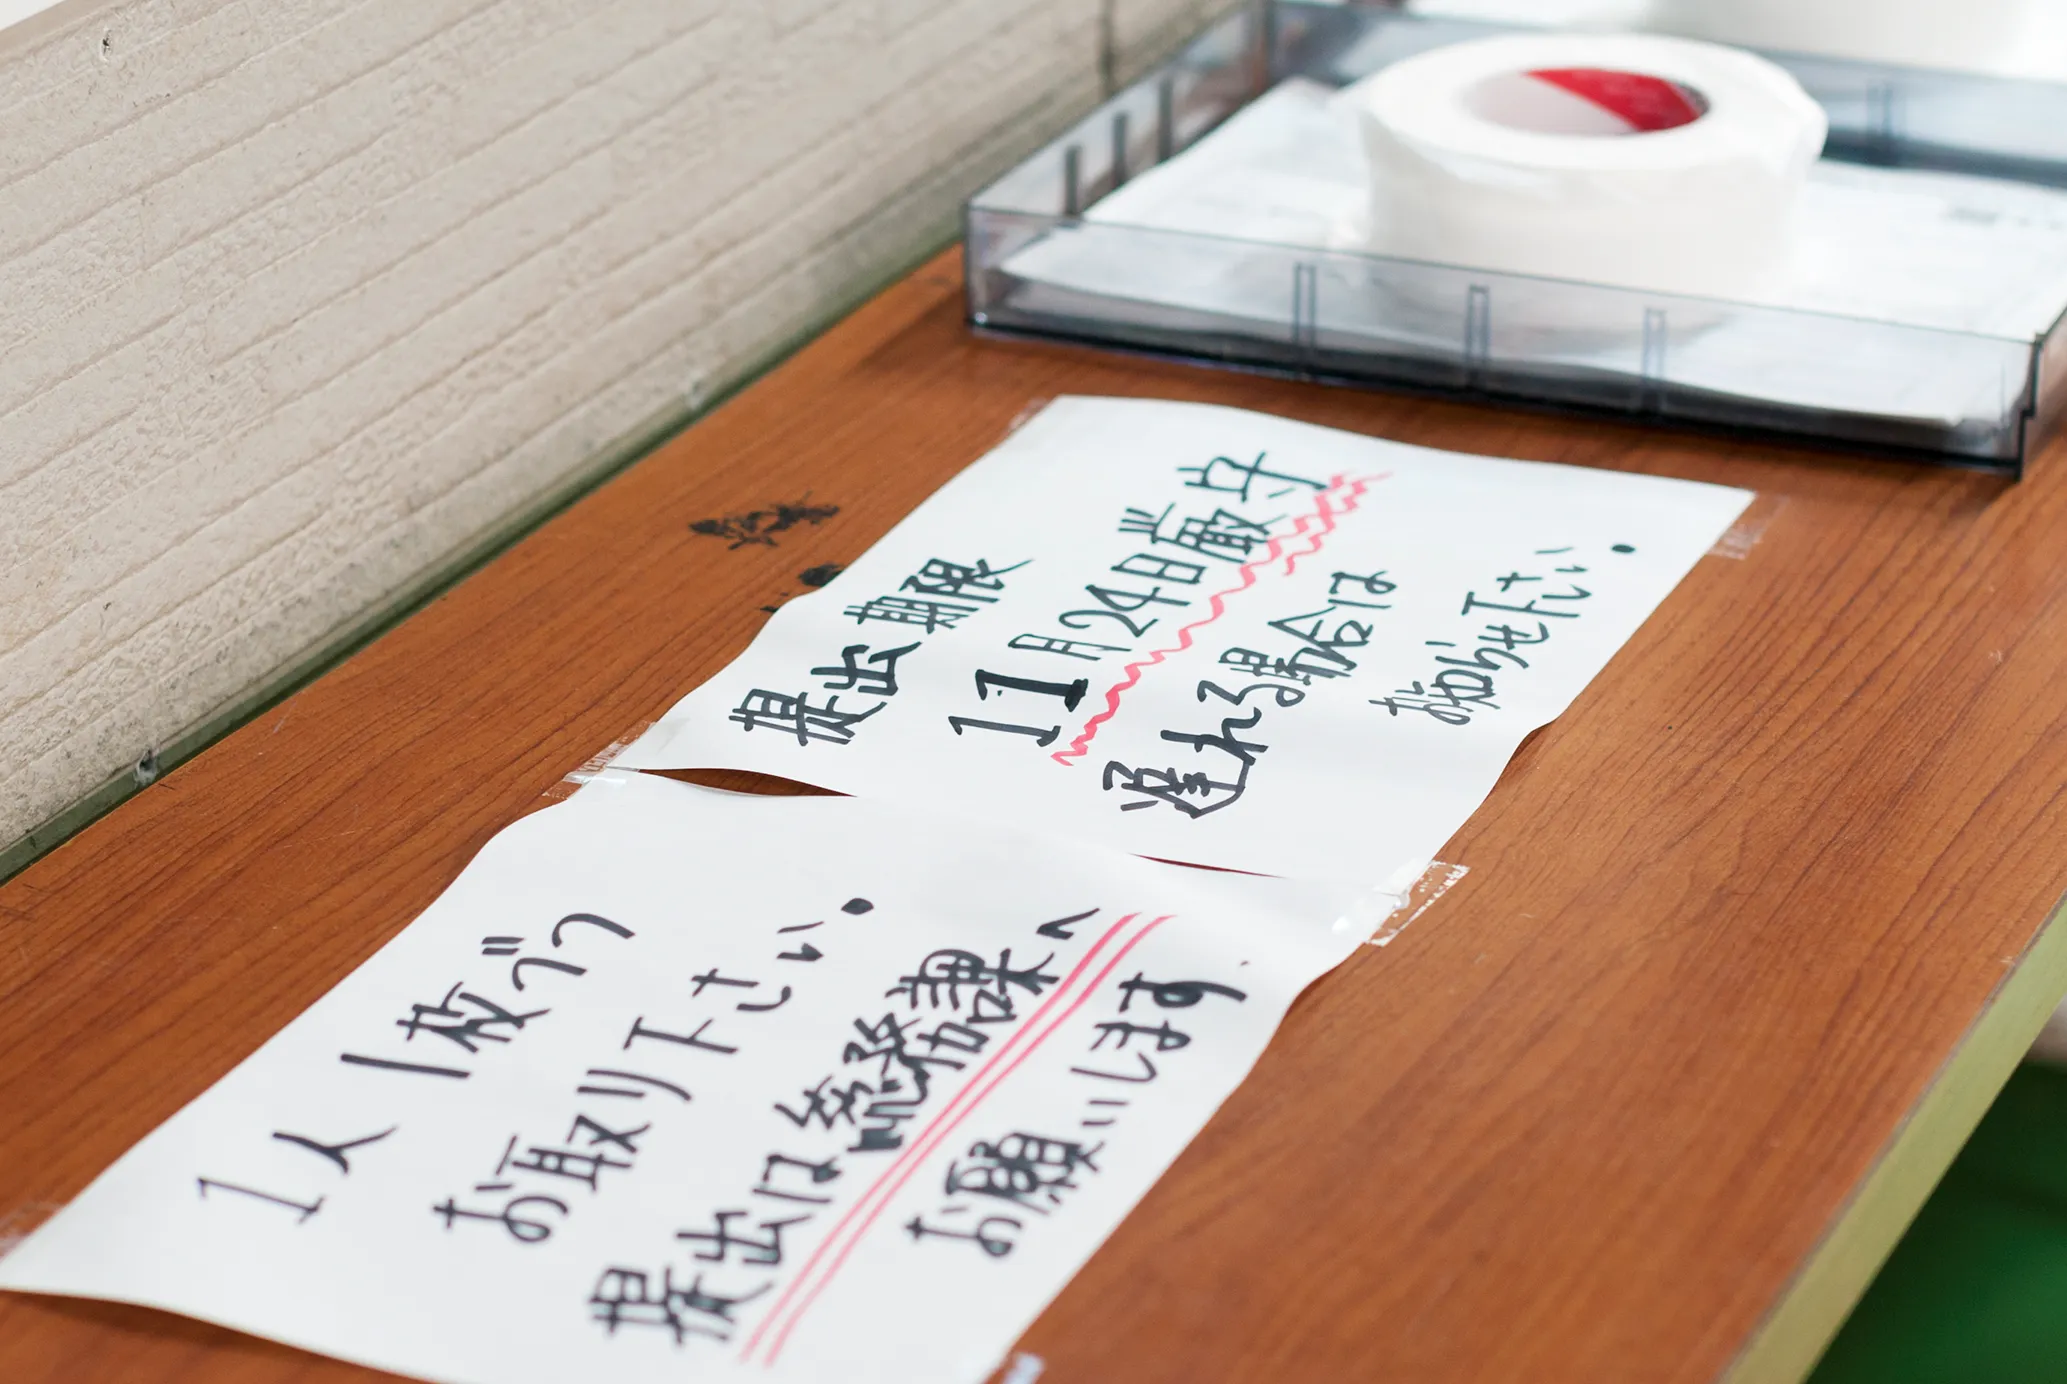 提出期限
11月24日厳守
遅れる場合は
お知らせ下さい.
1人1枚ずつ
お取り下さい.
提出は総務課へ
お願いします.